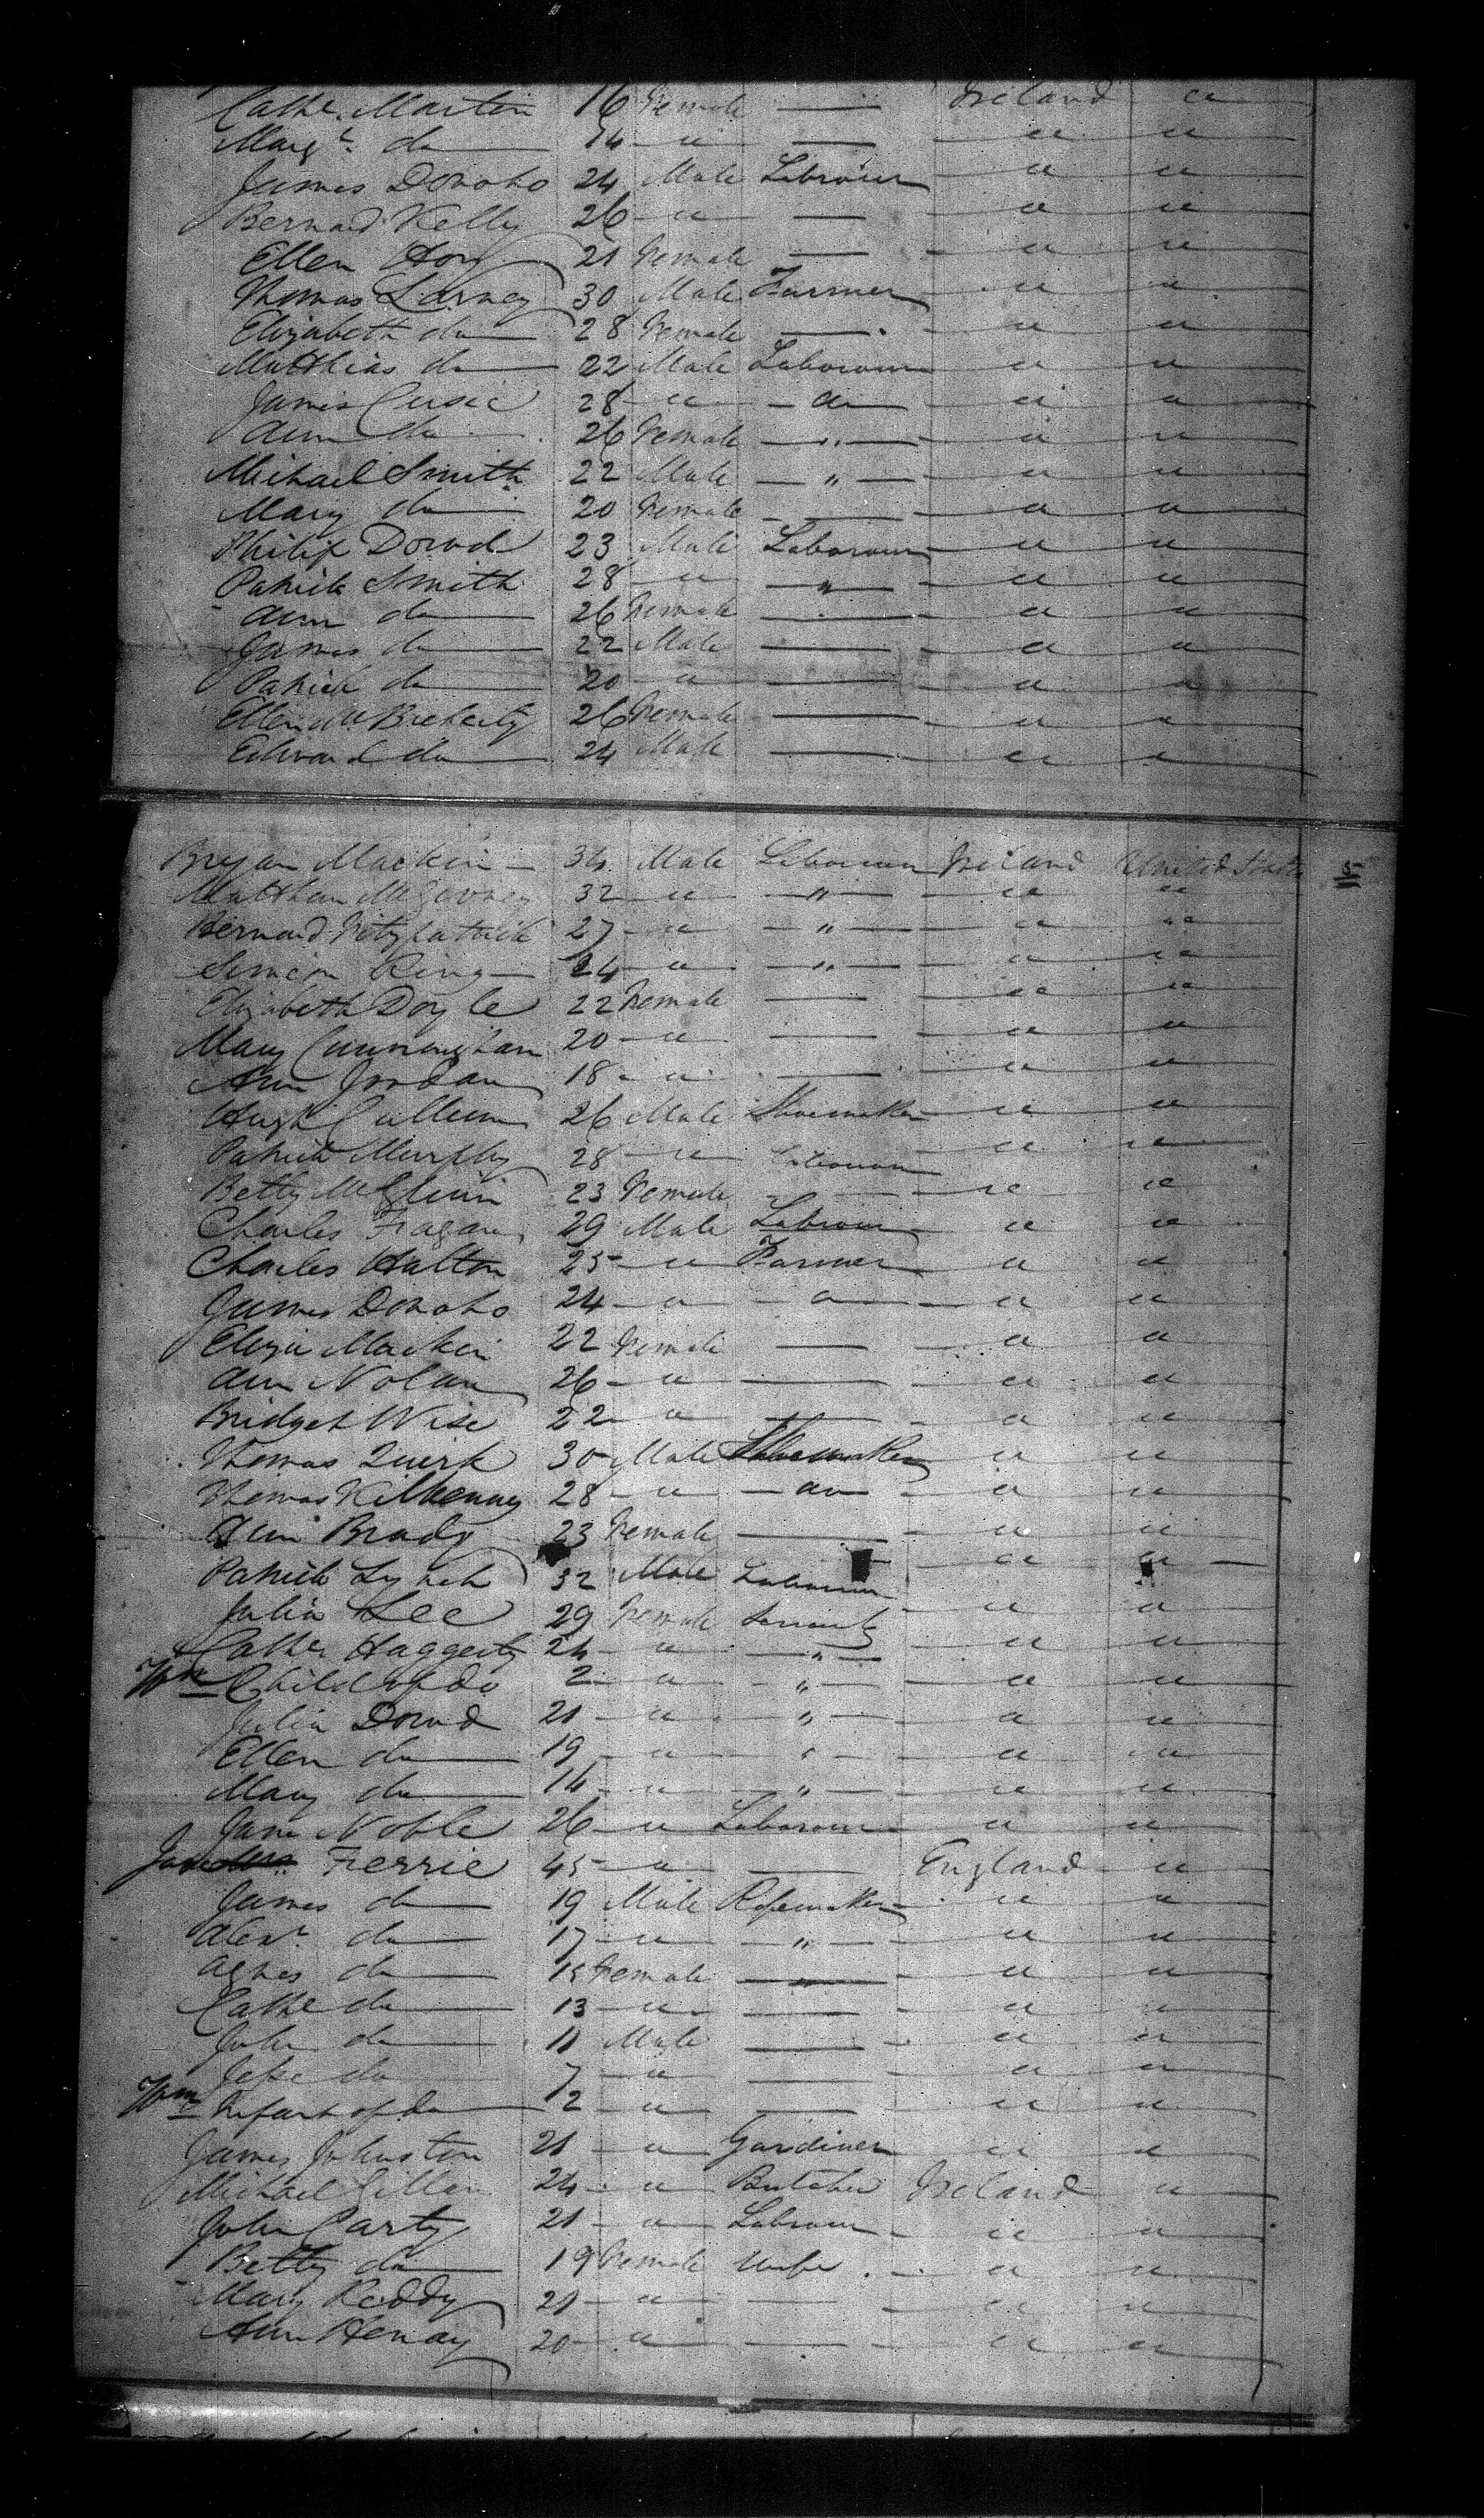 Cathe. Martin 16 Female — Ireland "
Margt. do 14 " — " "
James Donoho 24 Male Labourer " "
Bernard Kelly 26 " — " "
Ellen 21 Female — " "
Thomas Larney 30 Male Farmer " "
Elizabeth do 28 Female — " "
Matthias do 22 Male Labourer " "
James Cusic 28 " do " "
Ann do 26 Female " " "
Michael Smith 22 Male " " "
Mary do 20 Female — " "
Philip Dowd 23 Male Labourer " "
Patrick Smith 28 " " " "
Ann do 26 Female — " "
James do 22 Male — " "
Patrick do 20 " — " "
Ellen 26 Female — " "
Edward do 24 Male — " "
Bryan Mackin 34 Male Labourer Ireland United States 5
Matthew 32 " " " "
Bernard Fitzpatrick 27 " " " "
Simon Ring 24 " " " "
Elizabeth Doyle 22 Female — " "
Mary Cunningham 20 " — " "
Ann Jordan 18 " — " "
Hugh Cullum 26 Male Shoemaker " "
Patrick Murphy 28 " Labourer " "
Betty McGlinn 23 Female — " "
Charles Fragan 29 Male Labourer " "
Charles Halton 25 " Farmer " "
James Donoho 24 " " " "
Eliza Mackin 22 Female — " "
Ann Nolan 26 " — " "
Bridget Wise 22 " — " "
Thomas Quirk 30 Male Shoemaker " "
Thomas Kilkenny 28 " do " "
Ann Brady 23 Female — " "
Patrick Lynch 32 Male Labourer " "
Julia Lee 29 Female Servant " "
Cathe. Haggerty 24 " " " "
Wm Child of do 2 " " " "
Julia Dowd 21 " " " "
Ellen do 19 " " " "
Mary do 14 " " " "
Jane Noble 26 " Labourer " "
Jane Ferrie 45 " — England "
James do 19 Male Ropemaker " "
Alexr. do 17 " " " "
Agnes do 15 Female — " "
Cathe do 13 " — " "
John do 11 Male — " "
Jesse do 7 " — " "
Wm Infant of do 2 " — " "
James Johnston 21 " Gardiner " "
Michael Gillan 24 " Butcher Ireland "
John Carty 21 " Labourer " "
Betty do 19 Female Wife " "
Mary Reddy 21 " — " "
Ann Henay 20 " — " "